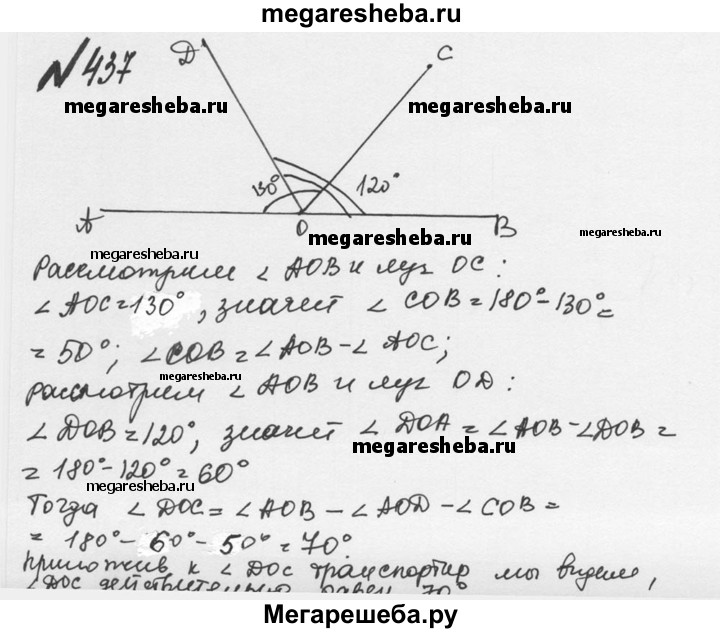 megaresheba.ru
№ 437
D
C
megaresheba.ru
megaresheba.ru
130°
120°
A
O
B
megaresheba.ru
megaresheba.ru
Рассмотрим ∠ AOB и луч OC :
∠ AOC = 130°, значит ∠ COB = 180° - 130° =
= 50°; ∠ COB = ∠ AOB - ∠ AOC;
megaresheba.ru
рассмотрим ∠ AOB и луч OD :
∠ DOB = 120°, значит ∠ DOA = ∠ AOB - ∠ DOB =
megaresheba.ru
= 180° - 120° = 60°
megaresheba.ru
Тогда ∠ DOC = ∠ AOB - ∠ AOD - ∠ COB =
= 180° - 60° - 50° = 70°
приложив к ∠ DOC транспортир мы видим,
∠ DOC действительно равен 70°
Мегарешеба.ру